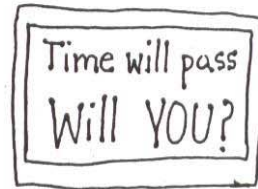 Time will pass
Will YOU?